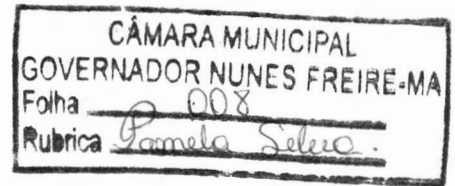 CÂMARA MUNICIPAL
GOVERNADOR NUNES FREIRE-MA
Folha 008
Rubrica Pamela Silva.